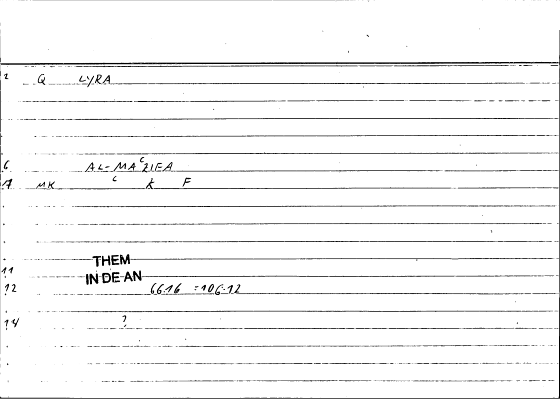 2 Q LYRA
6 AL-MAʿZIFA
7 MK ʿ K F
THEM
11
IN DE AN
12 6616 =106-12
14 ?